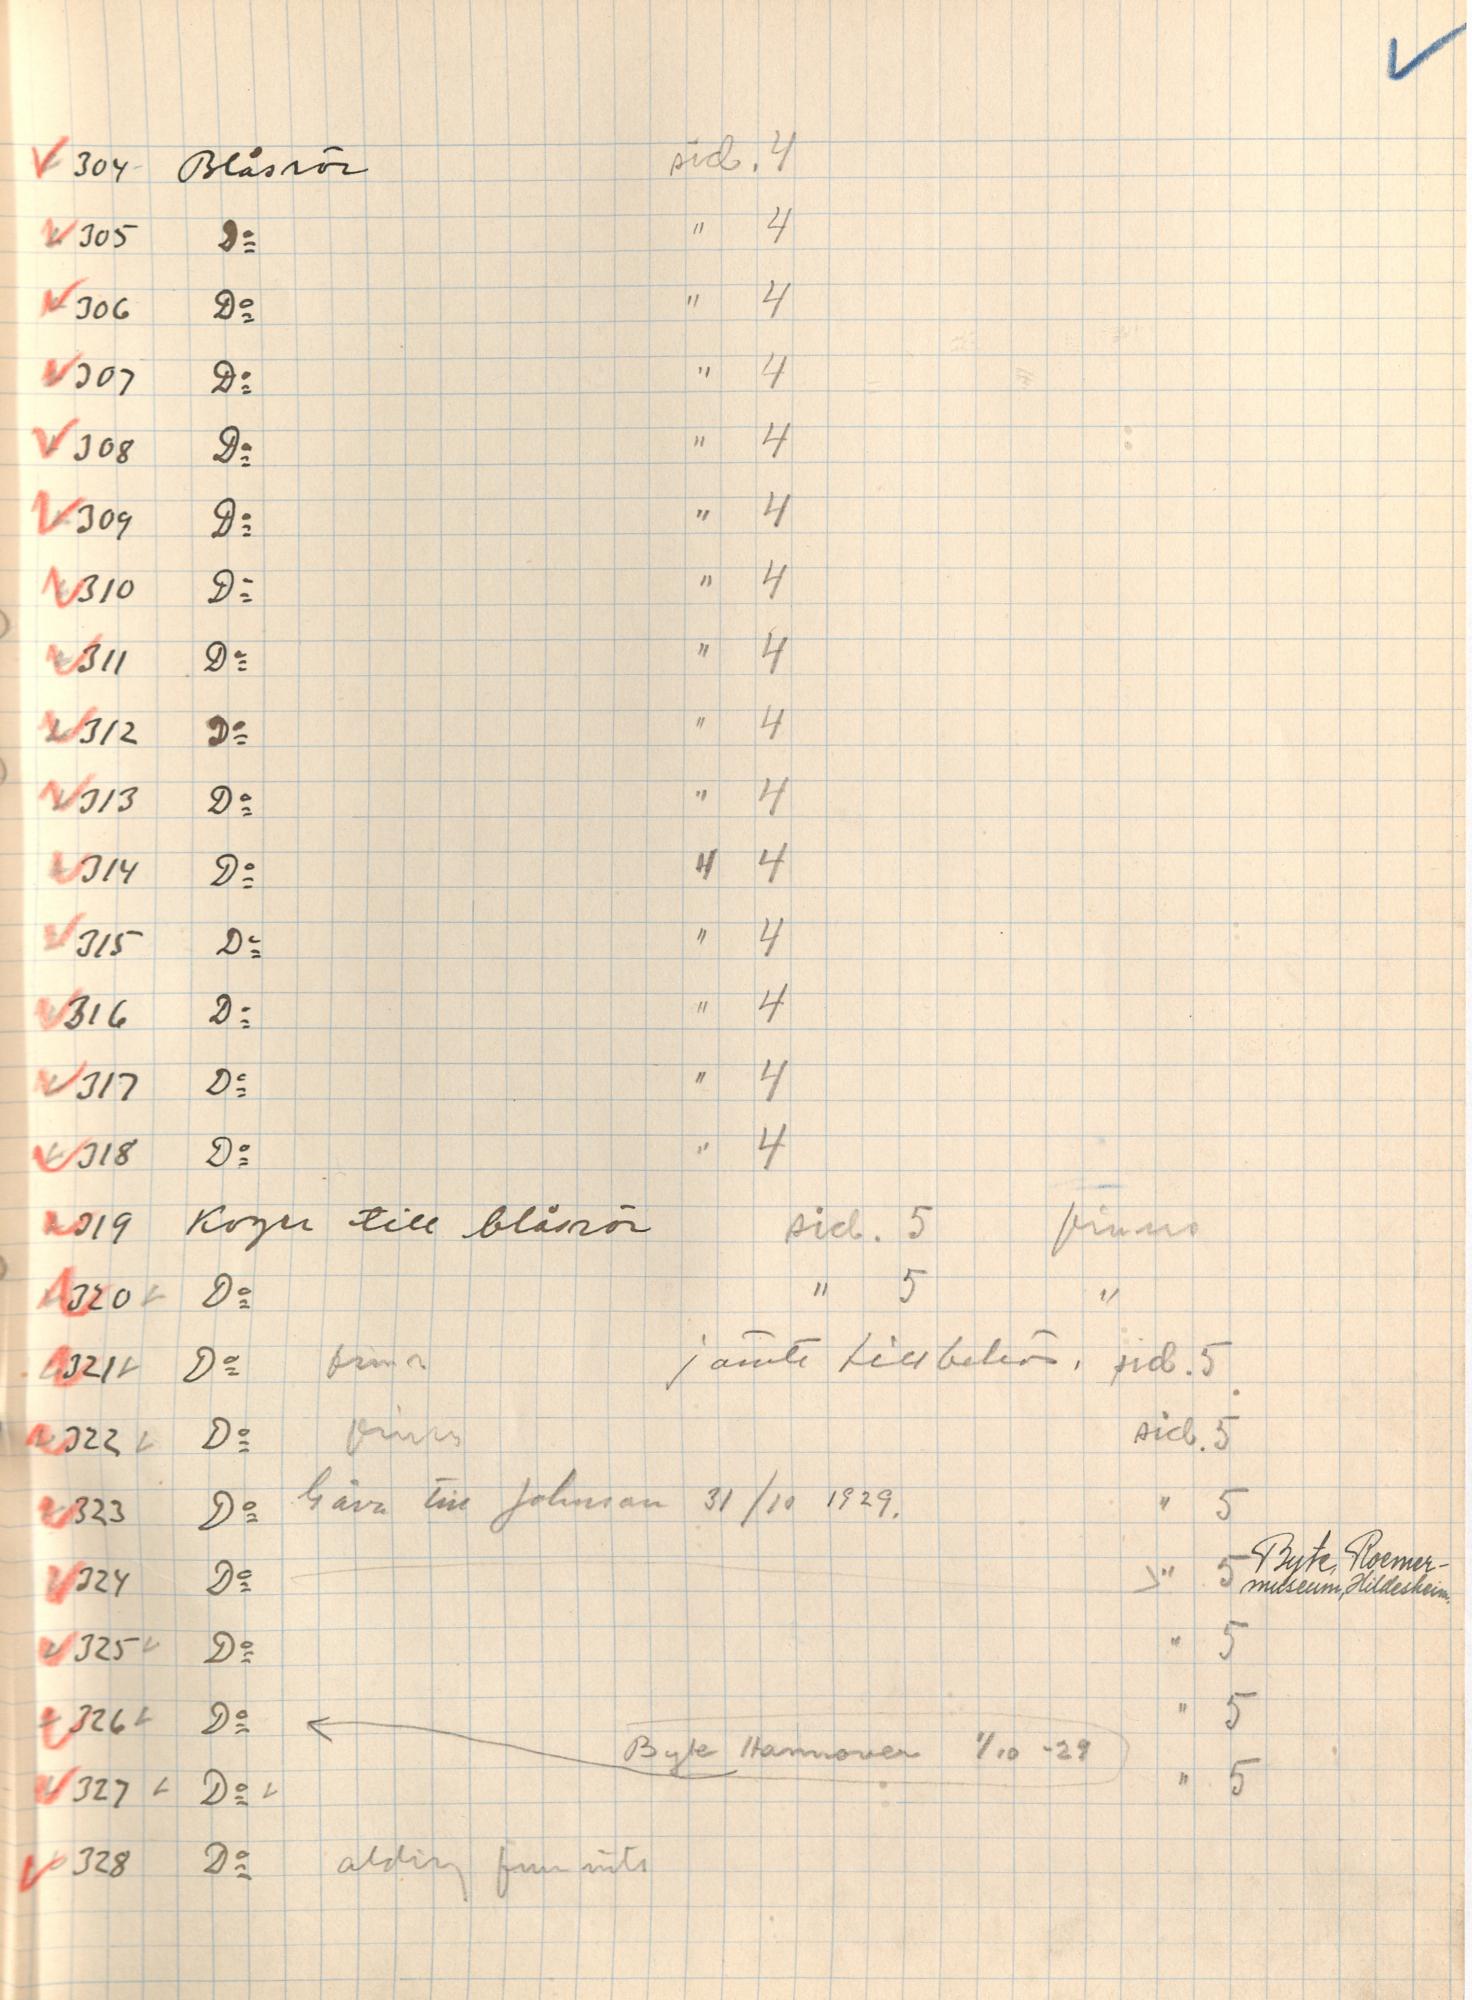 304 Blåsrör sid. 4
305 Do " 4
306 Do " 4
307 Do " 4
308 Do " 4
309 Do " 4
310 Do " 4
311 Do " 4
312 Do " 4
313 Do " 4
314 Do " 4
315 Do " 4
316 Do " 4
317 Do " 4
318 Do " 4
319 Koger till blåsrör sid. 5 finns
320 Do " 5 "
321 Do finns jämte tillbehör, sid. 5
322 Do finns sid. 5
323 Do Gåva till Johnson 31/10 1929. " 5
324 Do " 5 Byte, Roemer-
museum, Hildesheim.
325 Do " 5
326 Do " 5
Byte Hannover 1/10 -29
327 Do " 5
328 Do aldrig funnits